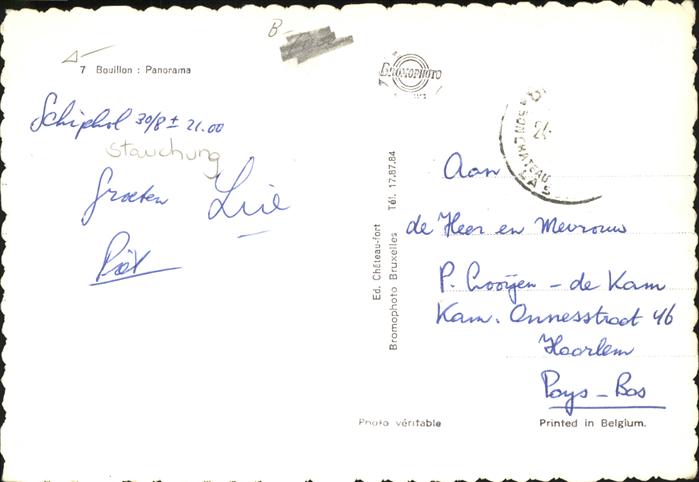 B-
7 Bouillon : Panorama
Schiphol 30/8 ± 21.00
stauchung
Groeten Lië
Piet
BROMOPHOTO
Ed. Château-fort
Bromophoto Bruxelles Tél. 17.87.84
Aan
de Heer en Mevrouw
P. Crooijen - de Kam
Kam. Onnesstraat 46
Haarlem
Pays-Bas
Photo véritable
Printed in Belgium.